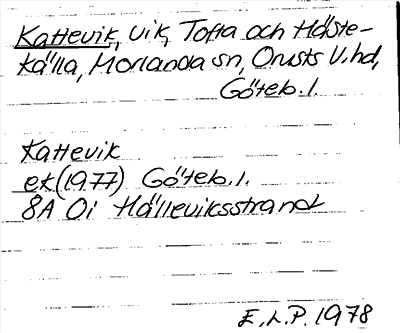 Kattevik, Vik, Tofta och Häste-
källa, Morlanda sn, Orusts V. hd,
Göteb. l.
Kattevik
ek (1977) Göteb. l.
8A 0i Hälleviksstrand
E. L. P. 1978